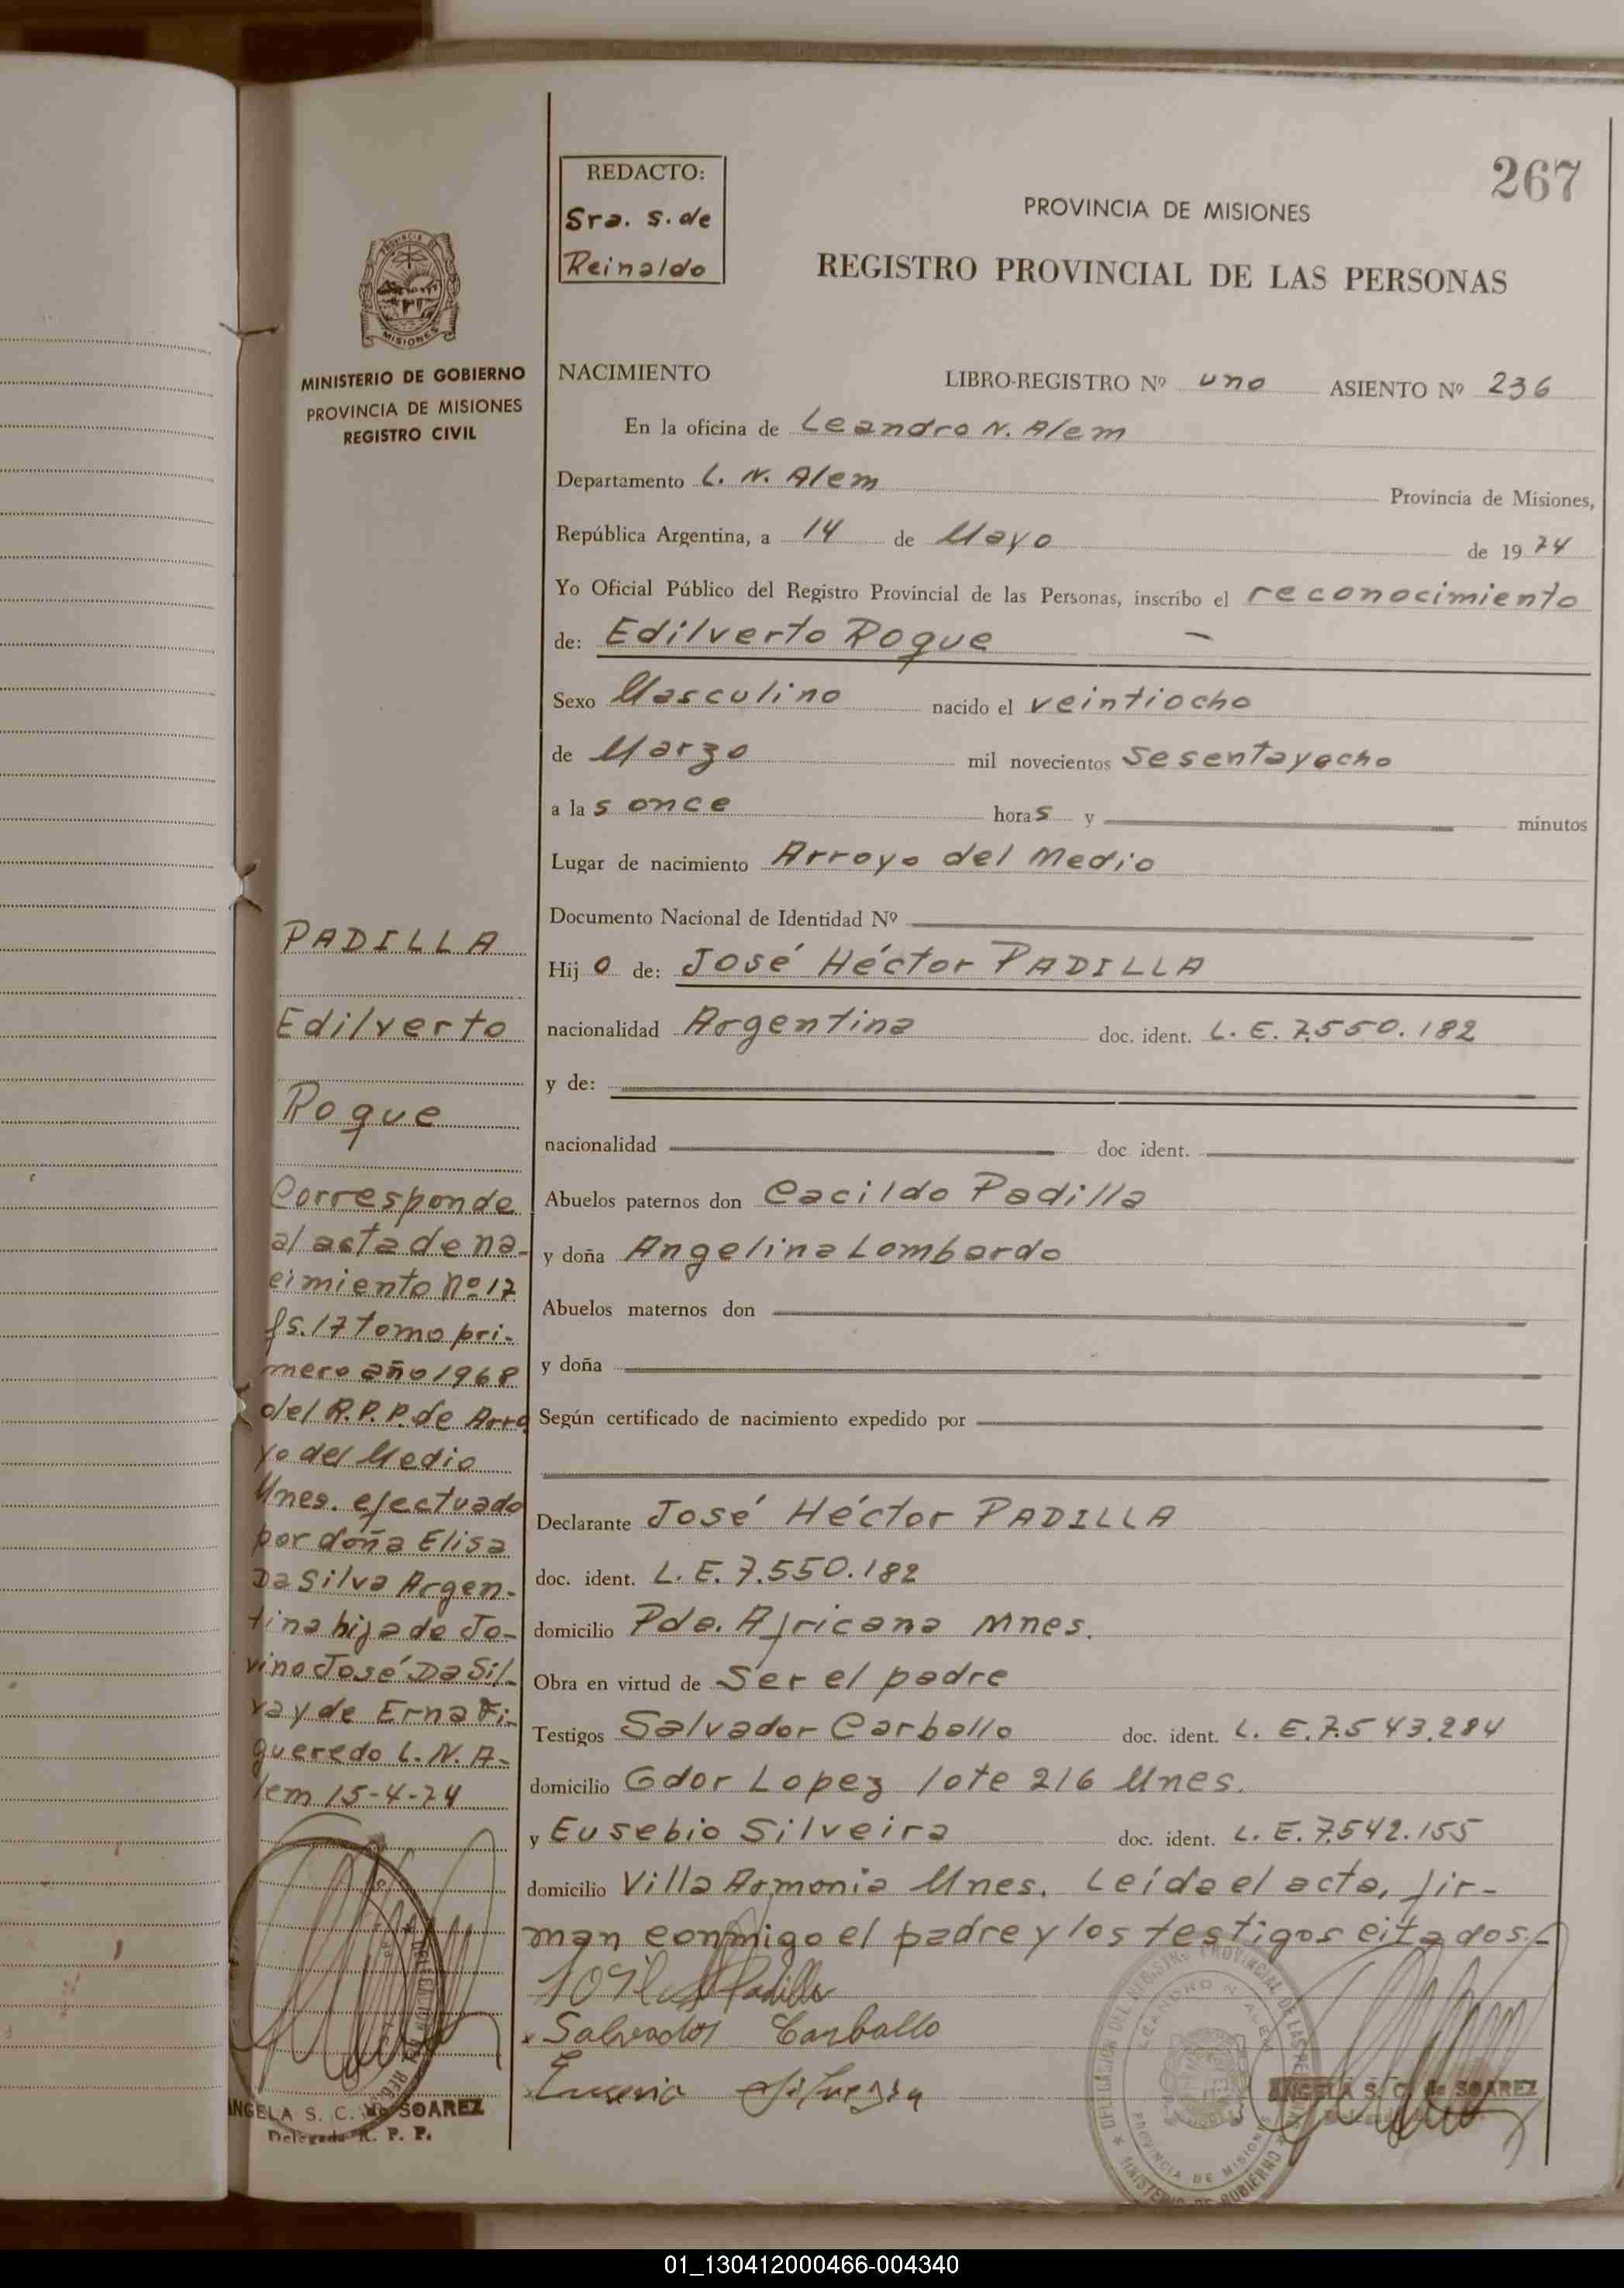 267
REDACTO:
Sra. S. de
Reinaldo
PROVINCIA DE MISIONES
REGISTRO PROVINCIAL DE LAS PERSONAS
PROVINCIA DE
MISIONES
MINISTERIO DE GOBIERNO
PROVINCIA DE MISIONES
REGISTRO CIVIL
NACIMIENTO LIBRO-REGISTRO Nº uno ASIENTO Nº 236
En la oficina de Leandro N. Alem
Departamento L. N. Alem Provincia de Misiones,
República Argentina, a 14 de Mayo de 1974
Yo Oficial Público del Registro Provincial de las Personas, inscribo el reconocimiento
de: Edilverto Roque —
Sexo Masculino nacido el veintiocho
de Marzo mil novecientos sesentayocho
a las once horas y minutos
Lugar de nacimiento Arroyo del Medio
Documento Nacional de Identidad Nº
Hijo de: José Héctor PADILLA
nacionalidad Argentina doc. ident. L. E. 7.550.182
y de:
nacionalidad doc. ident.
Abuelos paternos don Cacildo Padilla
y doña Angelina Lombardo
Abuelos maternos don
y doña
Según certificado de nacimiento expedido por
Declarante José Héctor PADILLA
doc. ident. L. E. 7.550.182
domicilio Pde. Africana Mnes.
Obra en virtud de Ser el padre
Testigos Salvador Carballo doc. ident. L. E. 7.543.284
domicilio Gdor Lopez lote 216 Mnes.
y Eusebio Silveira doc. ident. L. E. 7.542.155
domicilio Villa Armonia Mnes. Leída el acta, fir-
man conmigo el padre y los testigos citados.-
PADILLA
Edilverto
Roque
Corresponde
al acta de na-
cimiento Nº 17
fs. 17 tomo pri-
mero año 1968
del R.P.P. de Arro
yo del Medio
Mnes. efectuado
por doña Elisa
Da Silva Argen-
tina hija de Jo-
vino José Da Sil-
va y de Erna Fi-
gueredo L. N. A-
lem 15-4-74
Padilla
Salvador Carballo
ANGELA S. C. de SOAREZ
Delegada R. P. P.
DELEGACION DEL REGISTRO PROVINCIAL DE LAS PERSONAS
LEANDRO N. ALEM
PROVINCIA DE MISIONES
MINISTERIO DE GOBIERNO
ANGELA S. C. de SOAREZ
01_130412000466-004340